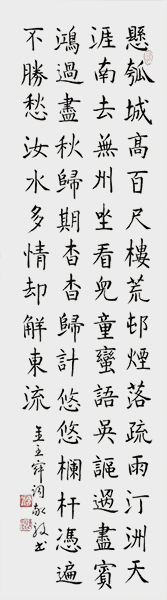 懸瓠城高百尺樓荒邨煙落疏雨汀洲天
涯南去無州坐看兒童蠻語吳謳過盡賓
鴻過盡秋歸期杳杳歸計悠悠欄杆憑遍
不勝愁汝水多情却解東流
金王寂詞 書